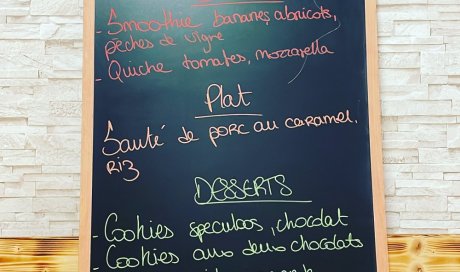 - Smoothie bananes, abricots,
pêches de vigne
- Quiche tomates, mozzarella
Plat
Sauté de porc au caramel.
Riz
DESSERTS
- Cookies speculoos, chocolat
- Cookies aux deux chocolats